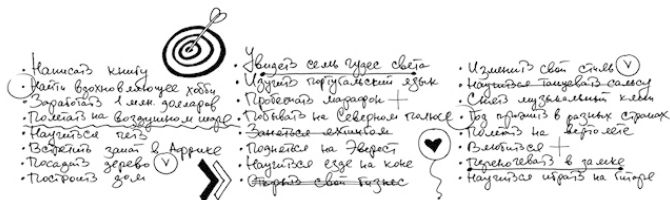 • Написать книгу
• Найти вдохновляющее хобби
• Заработать 1 млн. долларов
• Полетать на воздушном шаре
• Научиться петь
• Встретить закат в Африке
• Посадить дерево
• Построить дом
• Увидеть семь чудес света
• Изучить португальский язык
• Пробежать марафон
• Побывать на Северном полюсе
• Заняться яхтингом
• Подняться на Эверест
• Научиться езде на коне
• Открыть свой бизнес
• Изменить свой стиль
• Научиться танцевать сальсу
• Снять музыкальный клип
• Год прожить в разных странах
• Полетать на вертолете
• Влюбиться
• Переночевать в замке
• Научиться играть на гитаре